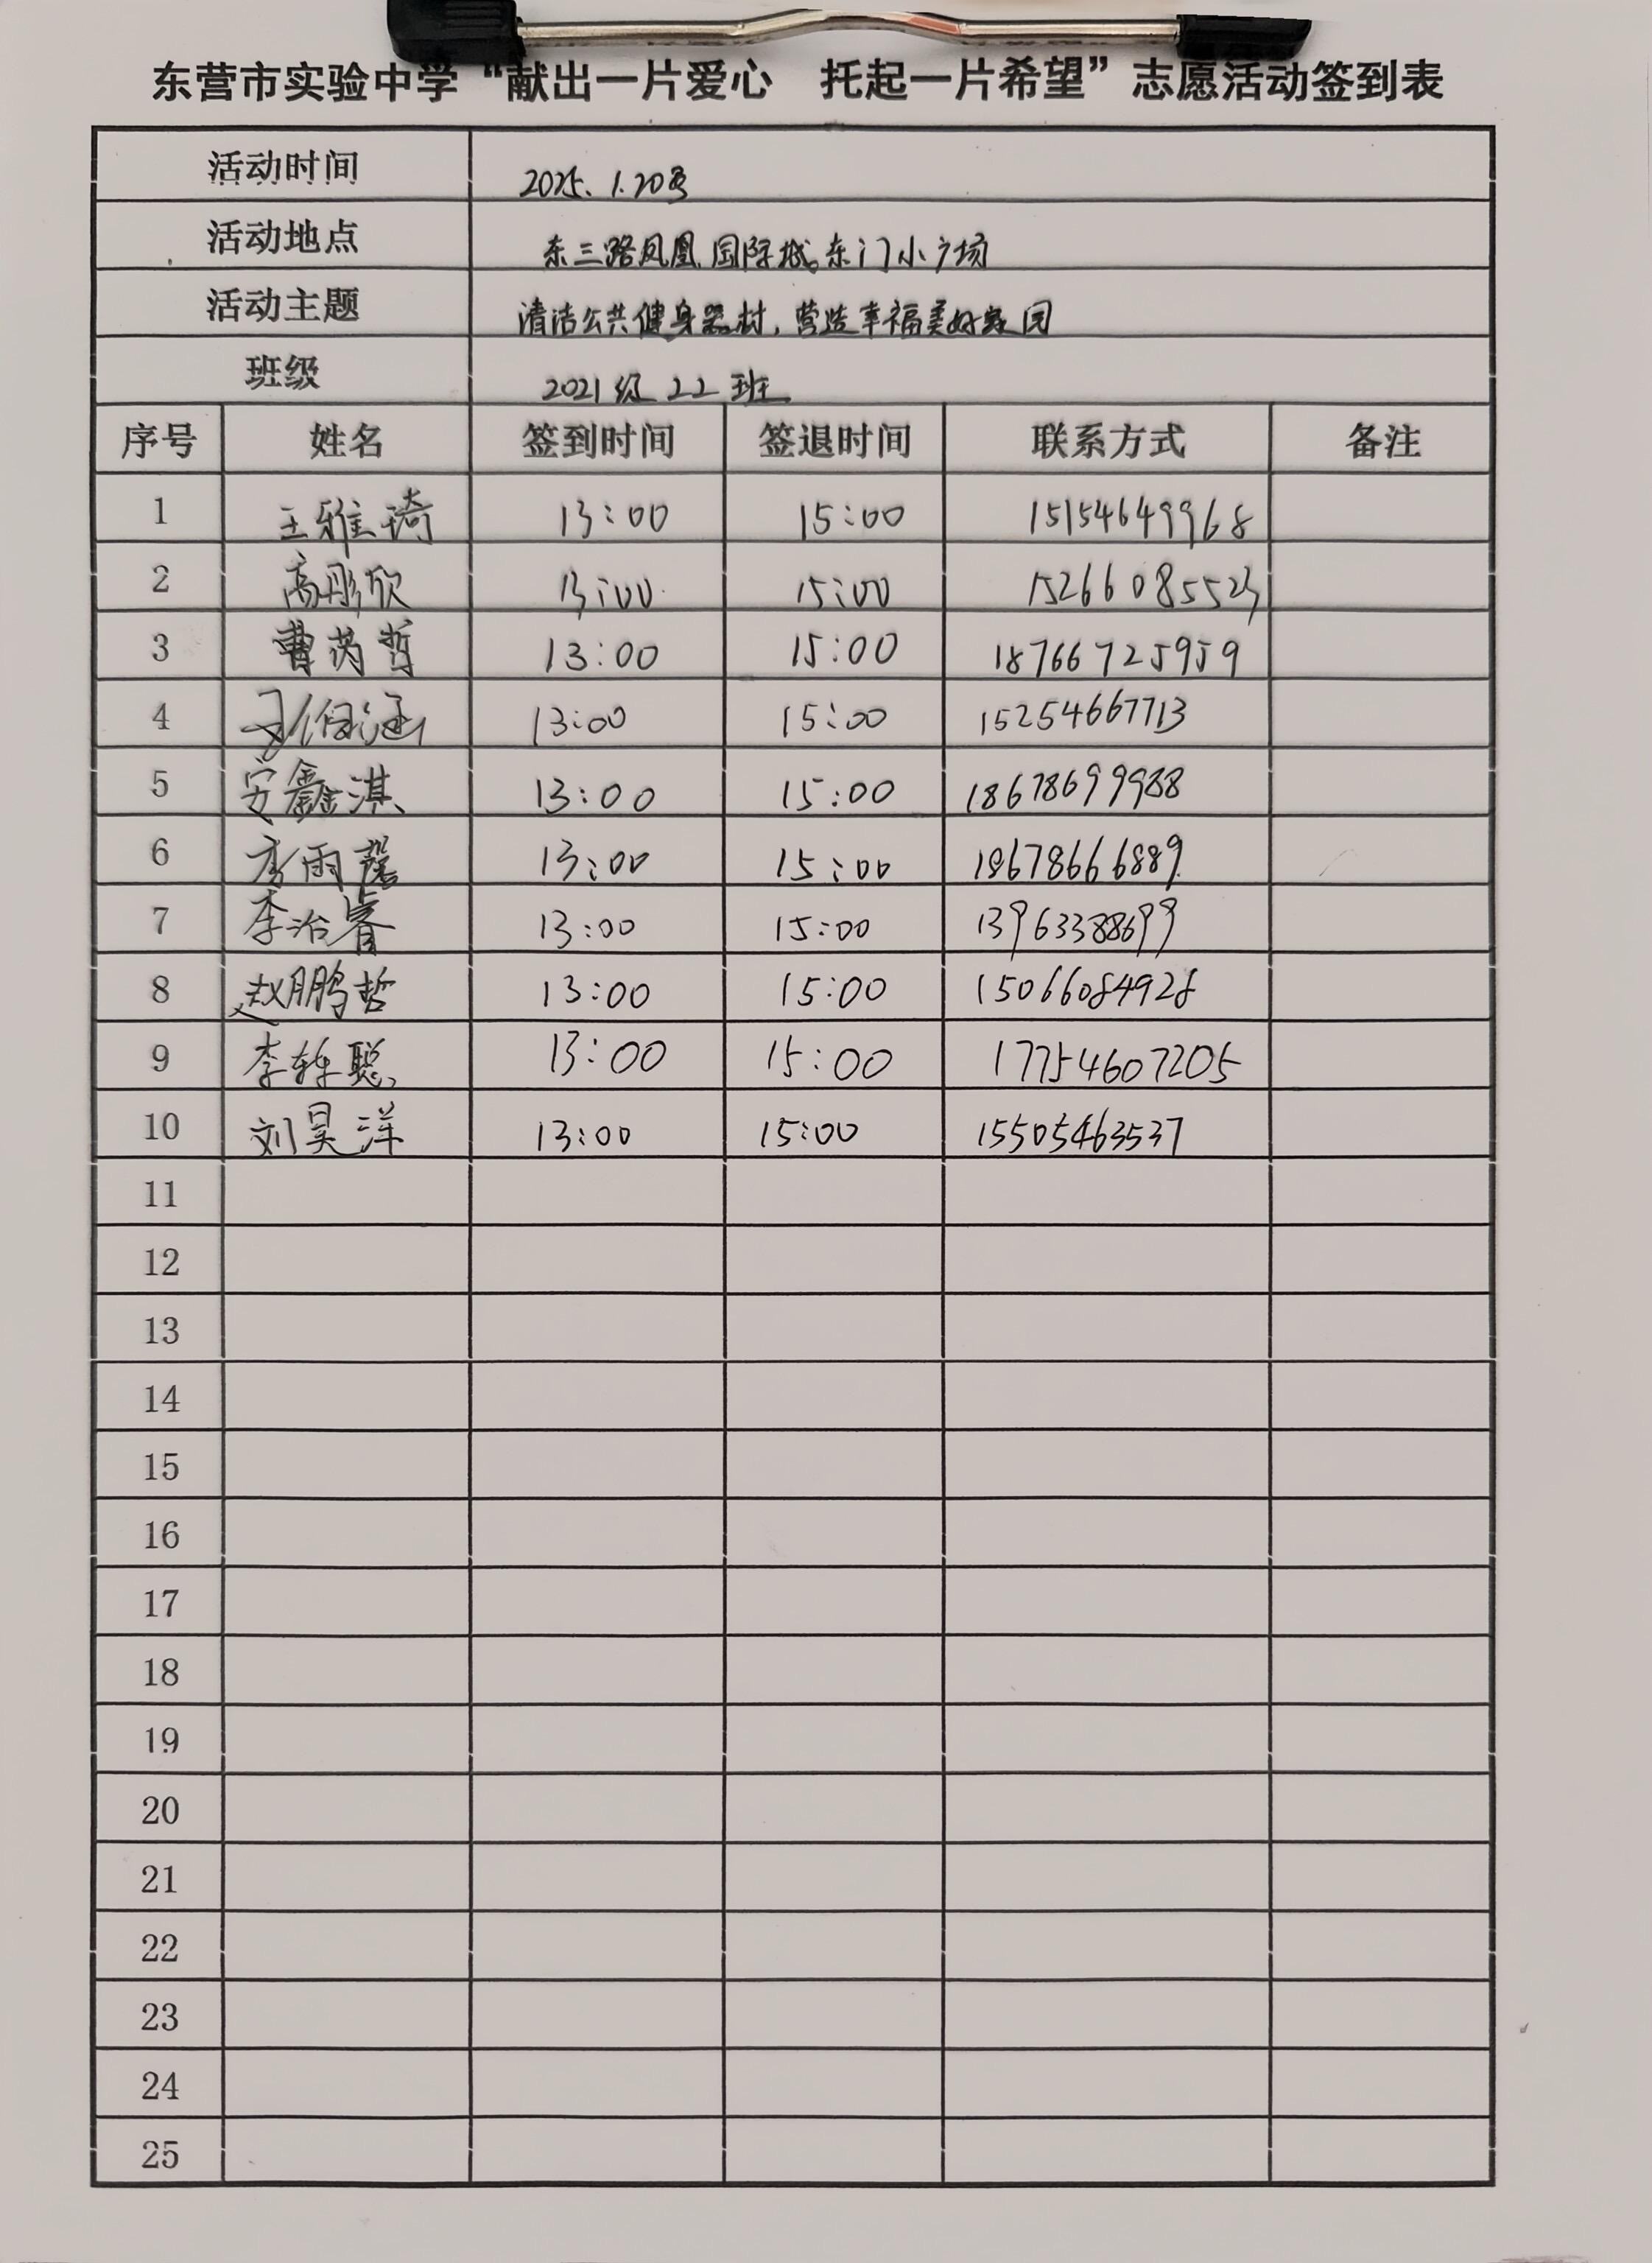 东营市实验中学“献出一片爱心　托起一片希望”志愿活动签到表
活动时间 2025. 1.20号
活动地点 东三路凤凰国际城东门小广场
活动主题 清洁公共健身器材，营造幸福美好家园
班级 2021级 22 班
序号 姓名 签到时间 签退时间 联系方式 备注
1 王雅琦 13:00 15:00 15154649968
2 高彤欣 13:00 15:00 15266085523
3 曹芮哲 13:00 15:00 18766725959
4 13:00 15:00 15254667713
5 安鑫淇 13:00 15:00 18678699988
6 雨馨 13:00 15:00 18678666889
7 李治睿 13:00 15:00 13963388699
8 赵鹏哲 13:00 15:00 15066084928
9 李轶聪 13:00 15:00 17754607205
10 刘昊洋 13:00 15:00 15505463537
11
12
13
14
15
16
17
18
19
20
21
22
23
24
25